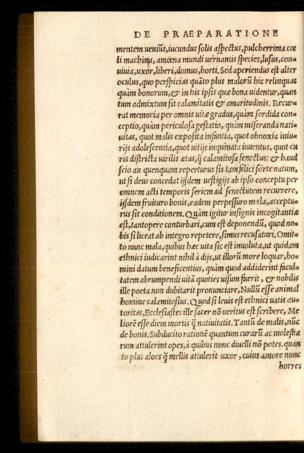 DE PRAEPARATIONE
mentem ueniũt, iucundus solis aspectus, pulcherrima cœ
li machina, amœna mundi uernantis species, lusus, con-
uiuia, uxor, liberi, domus, horti. Sed aperiendus est alter
oculus, quo perspicias quãto plus malorũ hic relinquas
quàm bonorum, & in his ipsis quæ bona uidentur, quan
tum admixtum sit calamitatis & amaritudinis. Recur-
rat memoria per omnis uitæ gradus, quàm sordida con-
ceptio, quàm periculosa gestatio, quàm miseranda nati-
uitas, quot malis exposita infantia, quot obnoxia iniu-
rijs adolescentia, quot uitijs inquinata iuuentus, quot cu
ris districta uirilis ætas, q̃ calamitosa senectus: & haud
scio an quenquam reperturus sis tam felici sorte natum,
ut si deus concedat ijsdem uestigijs ab ipso conceptu per
omnem acti temporis seriem ad senectutem recurrere,
ijsdem fruituro bonis, eadem perpessuro mala, acceptu-
rus sit conditionem. Quàm igitur insignis incogitantia
est, tantopere conturbari, cum est deponendũ, quod no-
bis si liceat ab integro repetere, simus recusaturi. Omit-
to nunc mala, quibus hæc uita sic est inuoluta, ut quidam
ethnici iudicarint nihil à dijs, ut illorũ more loquar, ho-
mini datum beneficentius, quàm quod addiderint facul-
tatem abrumpendi uitã quoties uisum fuerit, & nobilis
ille poeta non dubitarit pronunciare, Nullũ esse animal
homine calamitosius. Quod si leuis est ethnici uatis au-
toritas, Ecclesiastes ille sacer nõ ueritus est scribere, Me
liorẽ esse diem mortis q̃ natiuitatis. Tantũ de malis, nũc
de bonis. Subducito rationẽ quantum curarũ ac molestiæ
rum attulerint opes, à quibus nunc diuelli nõ potes, quan
to plus aloes q̃ mellis attulerit uxor, cuius amore nunc
horres